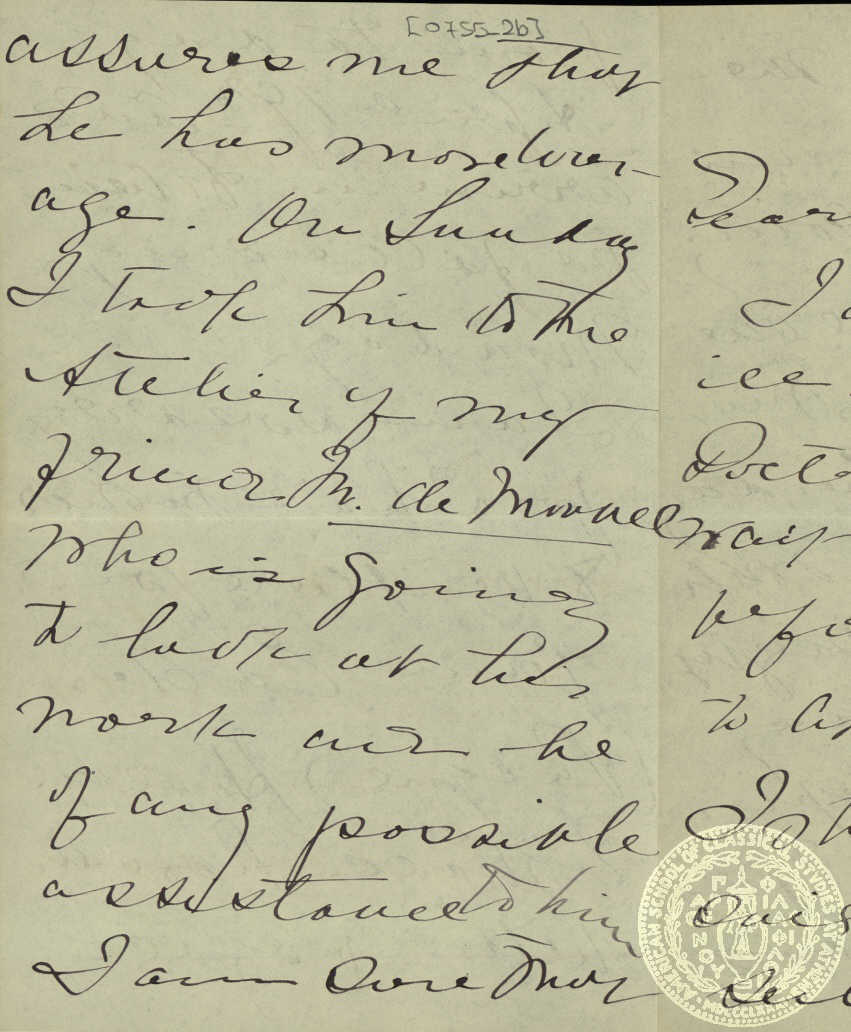 [0755_2b]
assures me that
he has more cour-
age. On Sunday
I took him to the
Atelier of my
friend M. de Monvel
who is going
to look at his
work and be
of any possible
assistance to him
I am sure that
Dear
I
ice
Doct
wait
befo
to
I
AMERICAN SCHOOL OF CLASSICAL STUDIES AT ATHENS
MDCCCLXXXI